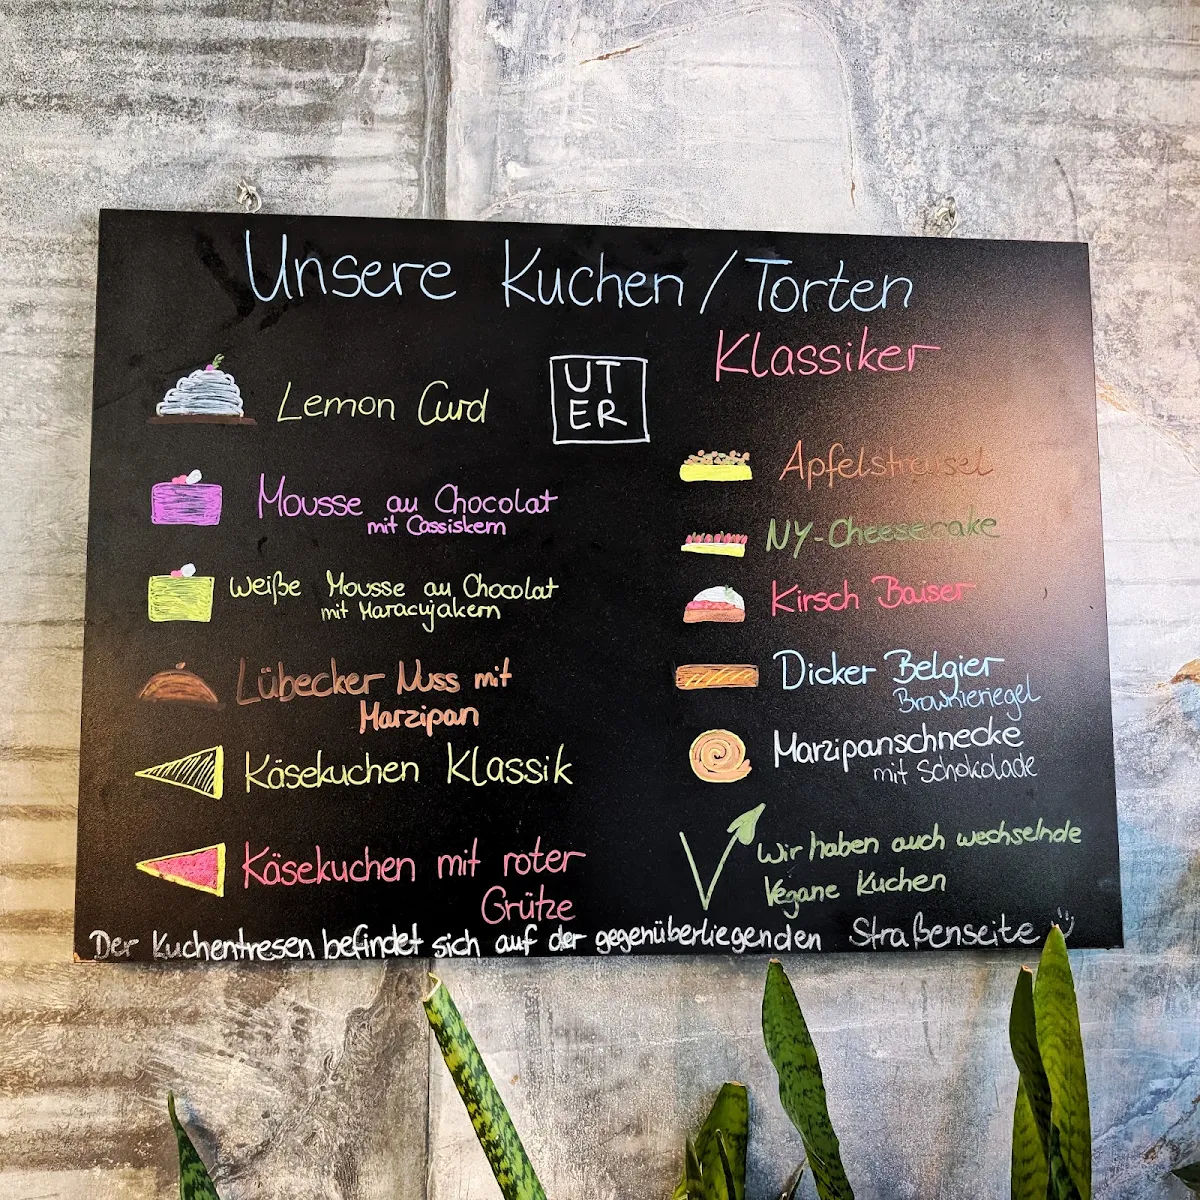 Unsere Kuchen/Torten
UT
ER
Lemon Curd
Mousse au Chocolat
mit Cassiskern
weiße Mousse au Chocolat
mit Maracujakern
Lübecker Nuss mit
Marzipan
Käsekuchen Klassik
Käsekuchen mit roter
Grütze
Klassiker
Apfelstreusel
NY-Cheesecake
Kirsch Baiser
Dicker Belgier
Brownieriegel
Marzipanschnecke
mit Schokolade
Wir haben auch wechselnde
Vegane Kuchen
Der Kuchentresen befindet sich auf der gegenüberliegenden Straßenseite